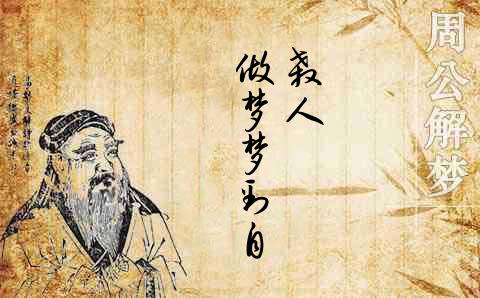 周公解梦
做梦梦到自
殺人